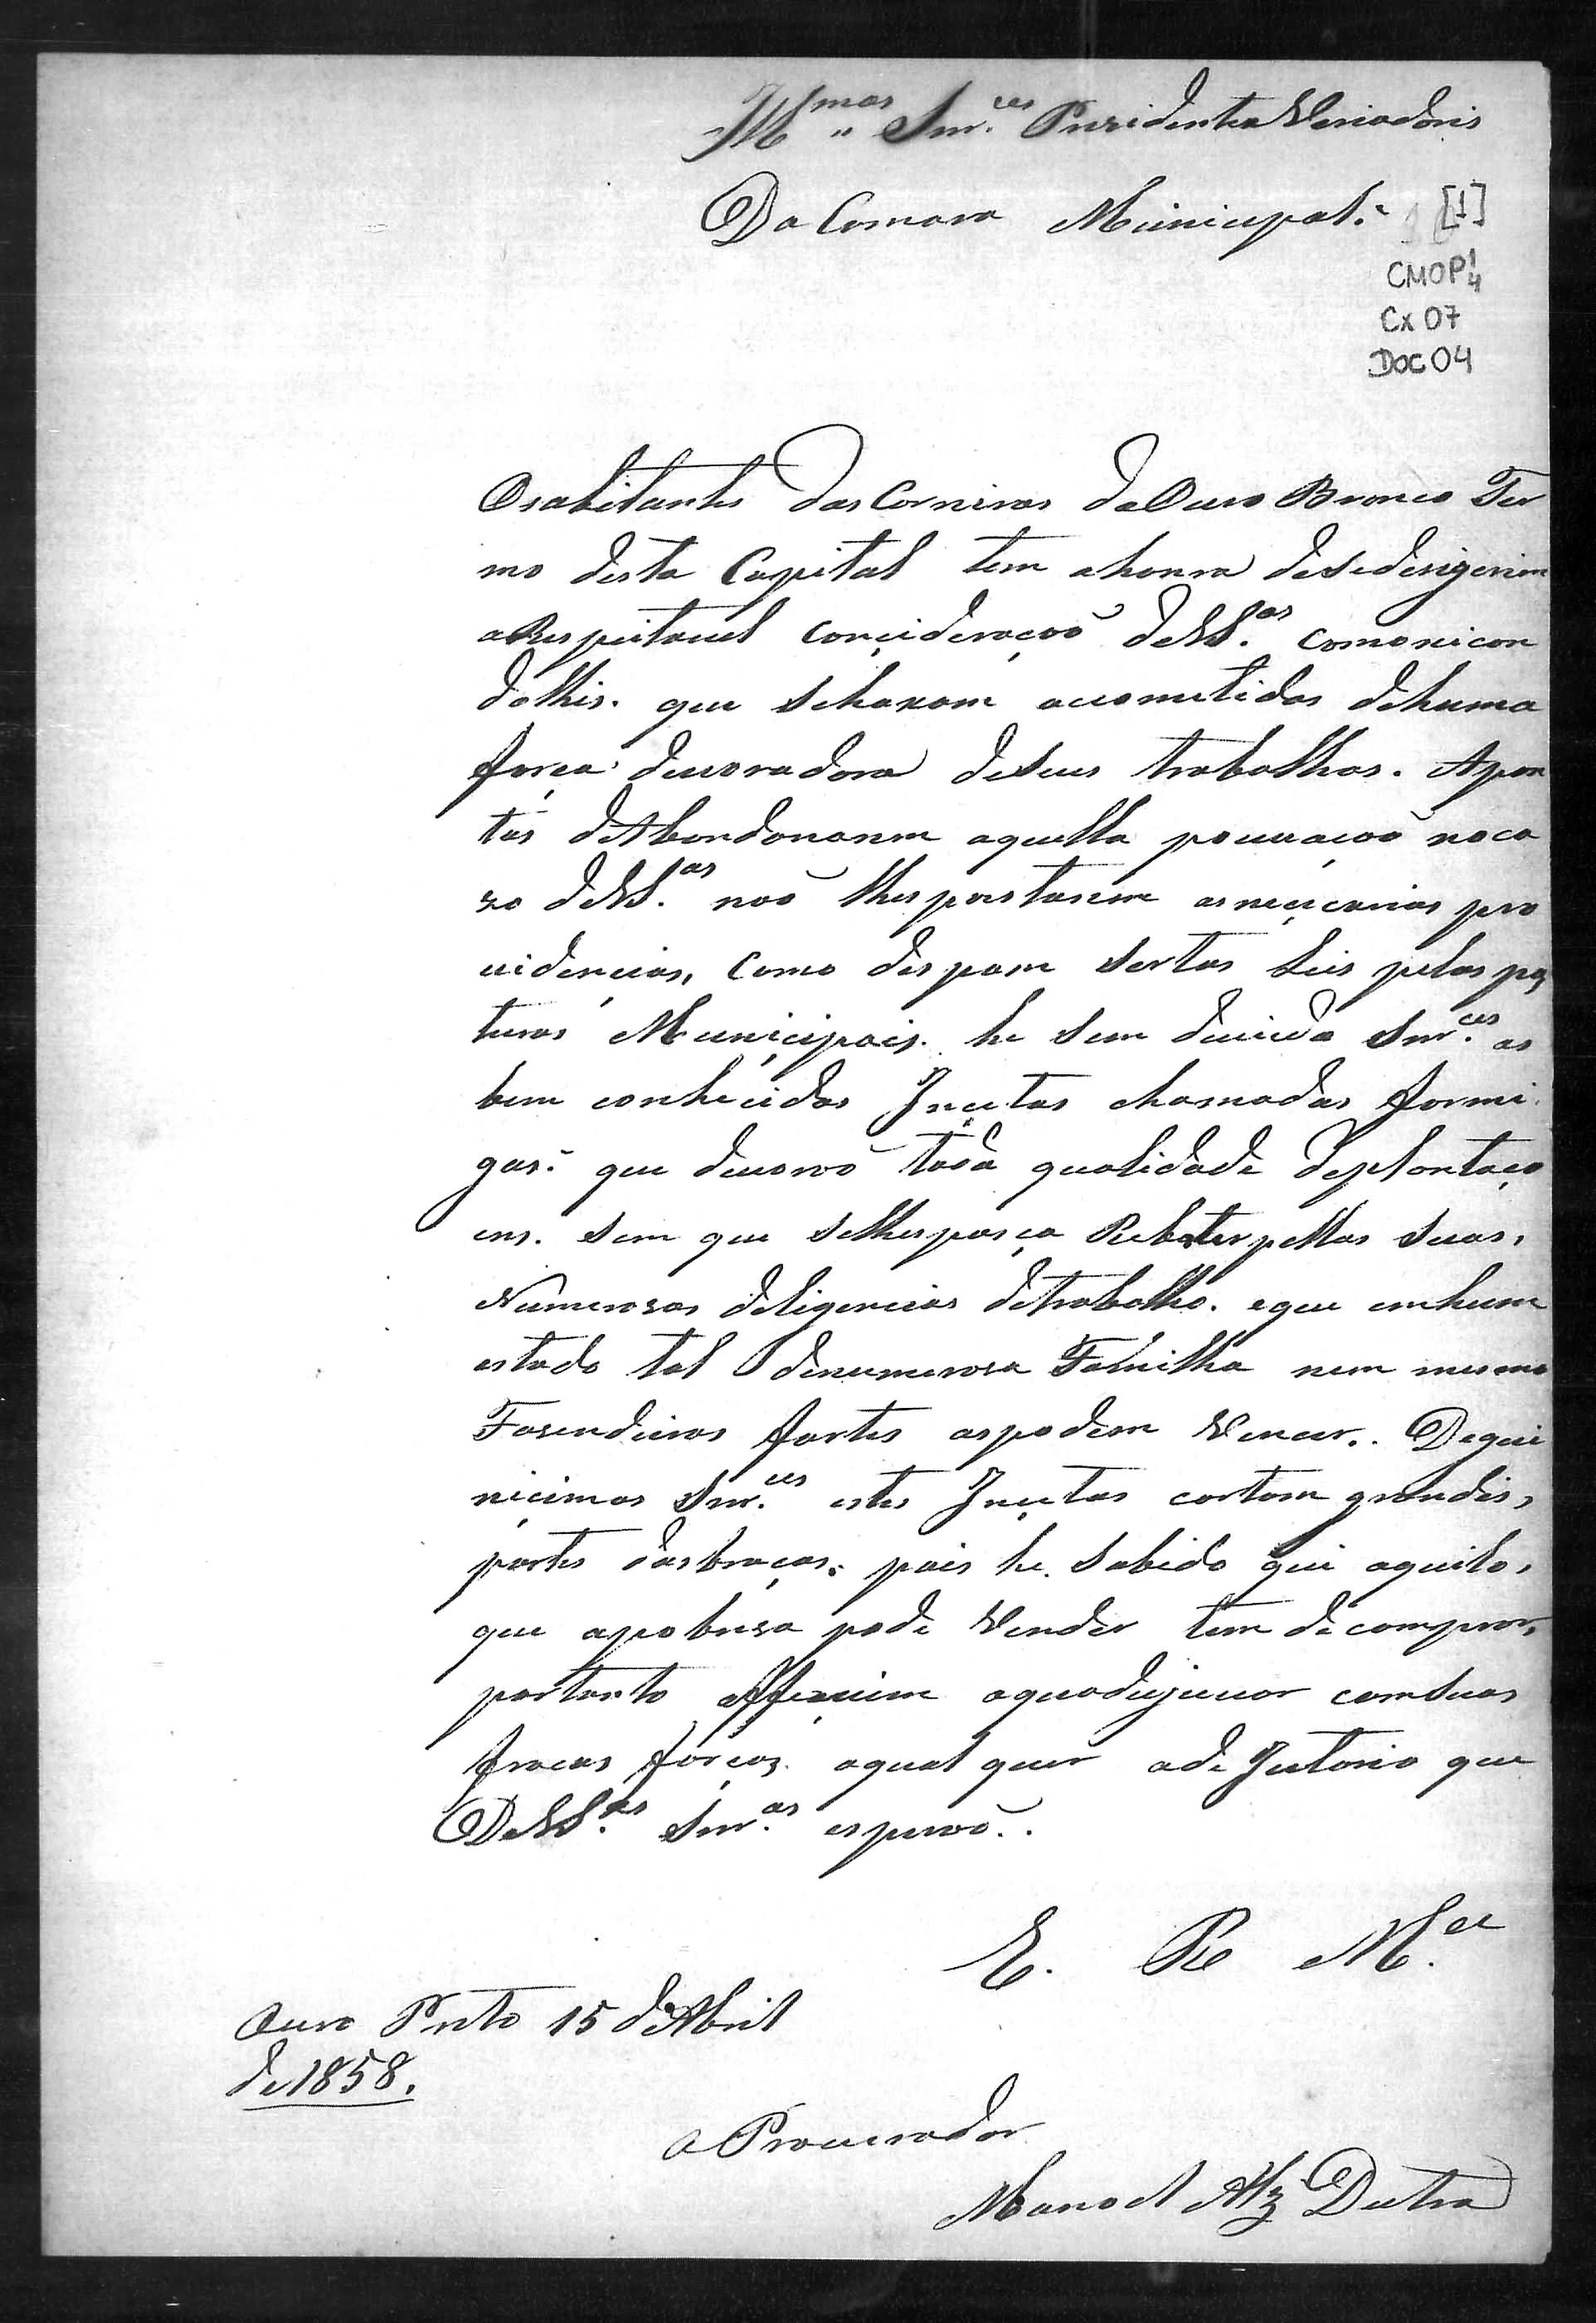 Ill.mos Snr.ces Prezidente e Veriadoris
Da Comara Municipal.
[1]
CMOP 1/4
Cx 07
Doc 04
Os abitantes das Corneiras de Ouro Branco Ter
mo desta Capital tem ahonra de se derigerim
a Respeitavel concideraçaõ de VS.as comonicon
dolhis. que sehaxam acometidos dehuma
força devoradora deseus trabalhos. Apon
tos de Abandonarem aquella povuaçaõ noca
zo de VS.as naõ lhes prestarem as neçicarias pro
videncias, como despoem sertas Leis pelas pos
turas Municipais. he sem duvida Snr.ces as
bem conhecidas Incetas chamadas formi
gas. que devoraõ toda qualidade deplantaço
ens. sem que selhespoça Rebater pellas suas,
Numerozas deligencias detrabalho. eque emhum
estado tal denumeroza Familha nem mesmo
Fasendeiros fortes aspodem Vencer. Dequi
nicimos Snr.ces estes Incetos cortam grandis,
partes dasbraças. pois he. sabido que aquilo,
que apobreza pode Vender tem de comprar,
portanto Offerecem aquadejuvar comsuas
fracas forças. aqual quer ade Jutorio que
De VS.as Snr.as esperaõ.
E. R. M.ce
Ouro Preto 15 de Abril
de 1858.
O Procurador
Manoel Alz Dutra